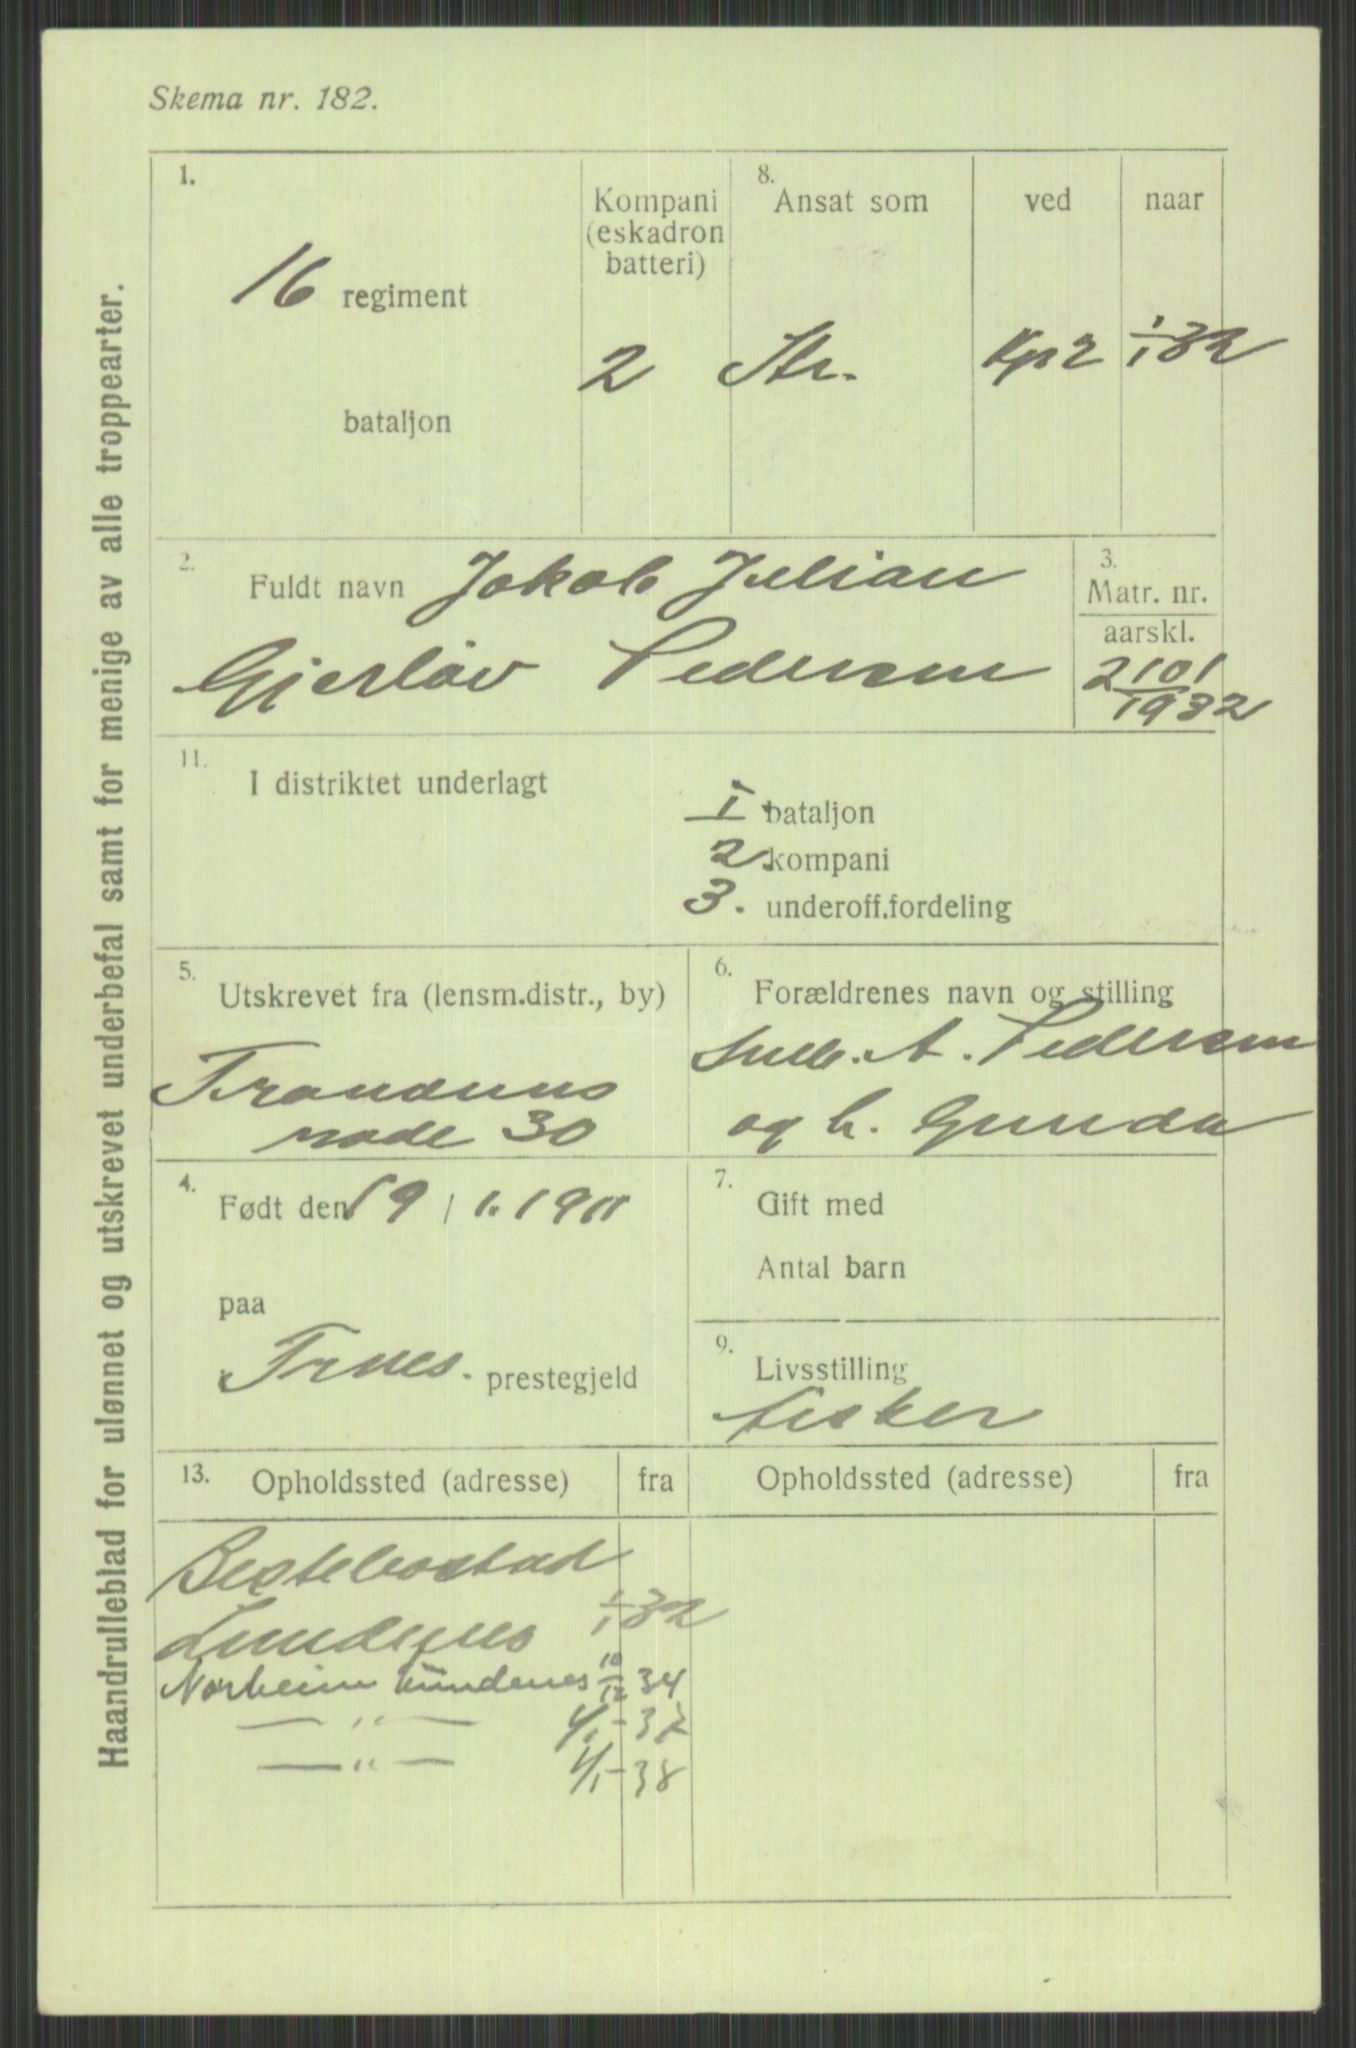 Skema nr. 182.
Haandrulleblad for ulønnet og utskrevet underbefal samt for menige av alle troppearter.
1.
16 regiment
bataljon
Kompani
(eskadron
batteri)
2
8.
Ansat som
Str.
ved
Kp 2
naar
1/1 32
2.
Fuldt navn Jokob Julian
Gjerløv Pedersen
3.
Matr. nr.
aarskl.
2101
1932
11.
I distriktet underlagt
I bataljon
2 kompani
3. underoff.fordeling
5.
Utskrevet fra (lensm.distr., by)
Trondenes
rode 30
6.
Forældrenes navn og stilling
A. Pedersen
og h. Gunda
4.
Født den 19 / 1. 1911
paa
Trnes. prestegjeld
7.
Gift med
Antal barn
9.
Livsstilling
fisker
13. Opholdssted (adresse) fra
Opholdssted (adresse) fra
Bestebostad
Lundenes 1/1 32
Norheim Lundenes 10/12 34
— " — 4/1 - 37
— " — 4/1 - 38